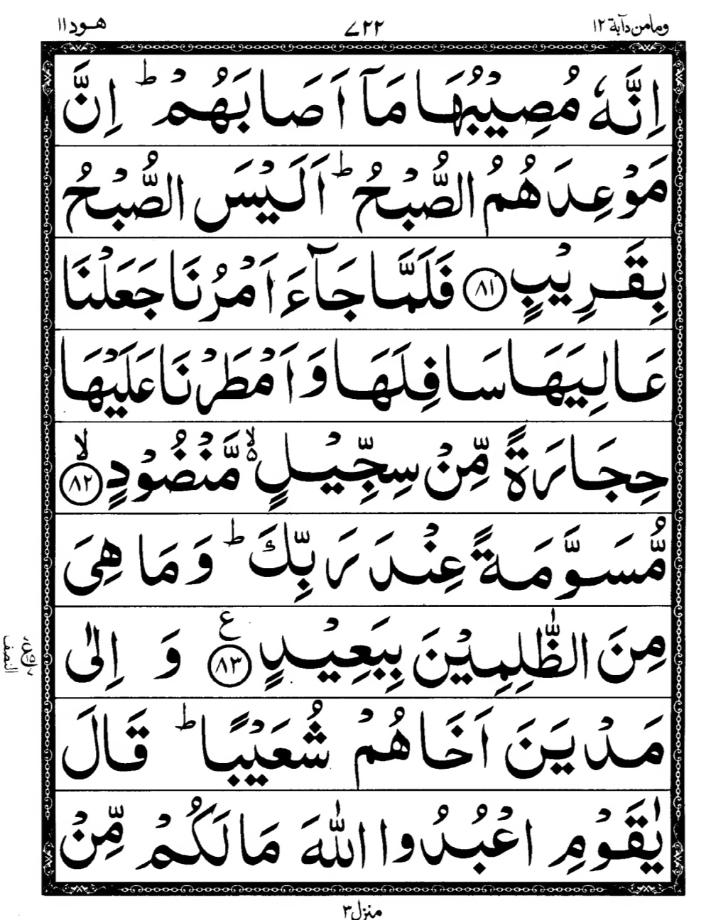 ومامن دآبة ١٢ ٧٢٢ هود ١١
اِنَّهٗ مُصِيْبُهَا مَآ اَصَابَهُمْ ؕ اِنَّ
مَوْعِدَهُمُ الصُّبْحُ ؕ اَلَيْسَ الصُّبْحُ
بِقَرِيْبٍ ﴿٨١﴾ فَلَمَّا جَآءَ اَمْرُنَا جَعَلْنَا
عَالِيَهَا سَافِلَهَا وَاَمْطَرْنَا عَلَيْهَا
حِجَارَةً مِّنْ سِجِّيْلٍ ۙ۬ مَّنْضُوْدٍ ﴿٨٢﴾ ۙ
مُّسَوَّمَةً عِنْدَ رَبِّكَ ؕ وَمَا هِىَ
مِنَ الظّٰلِمِيْنَ بِبَعِيْدٍ ﴿٨٣﴾ ع وَ اِلٰى
النصف
مَدْيَنَ اَخَاهُمْ شُعَيْبًا ؕ قَالَ
يٰقَوْمِ اعْبُدُوا اللّٰهَ مَالَكُمْ مِّنْ
منزل ٣